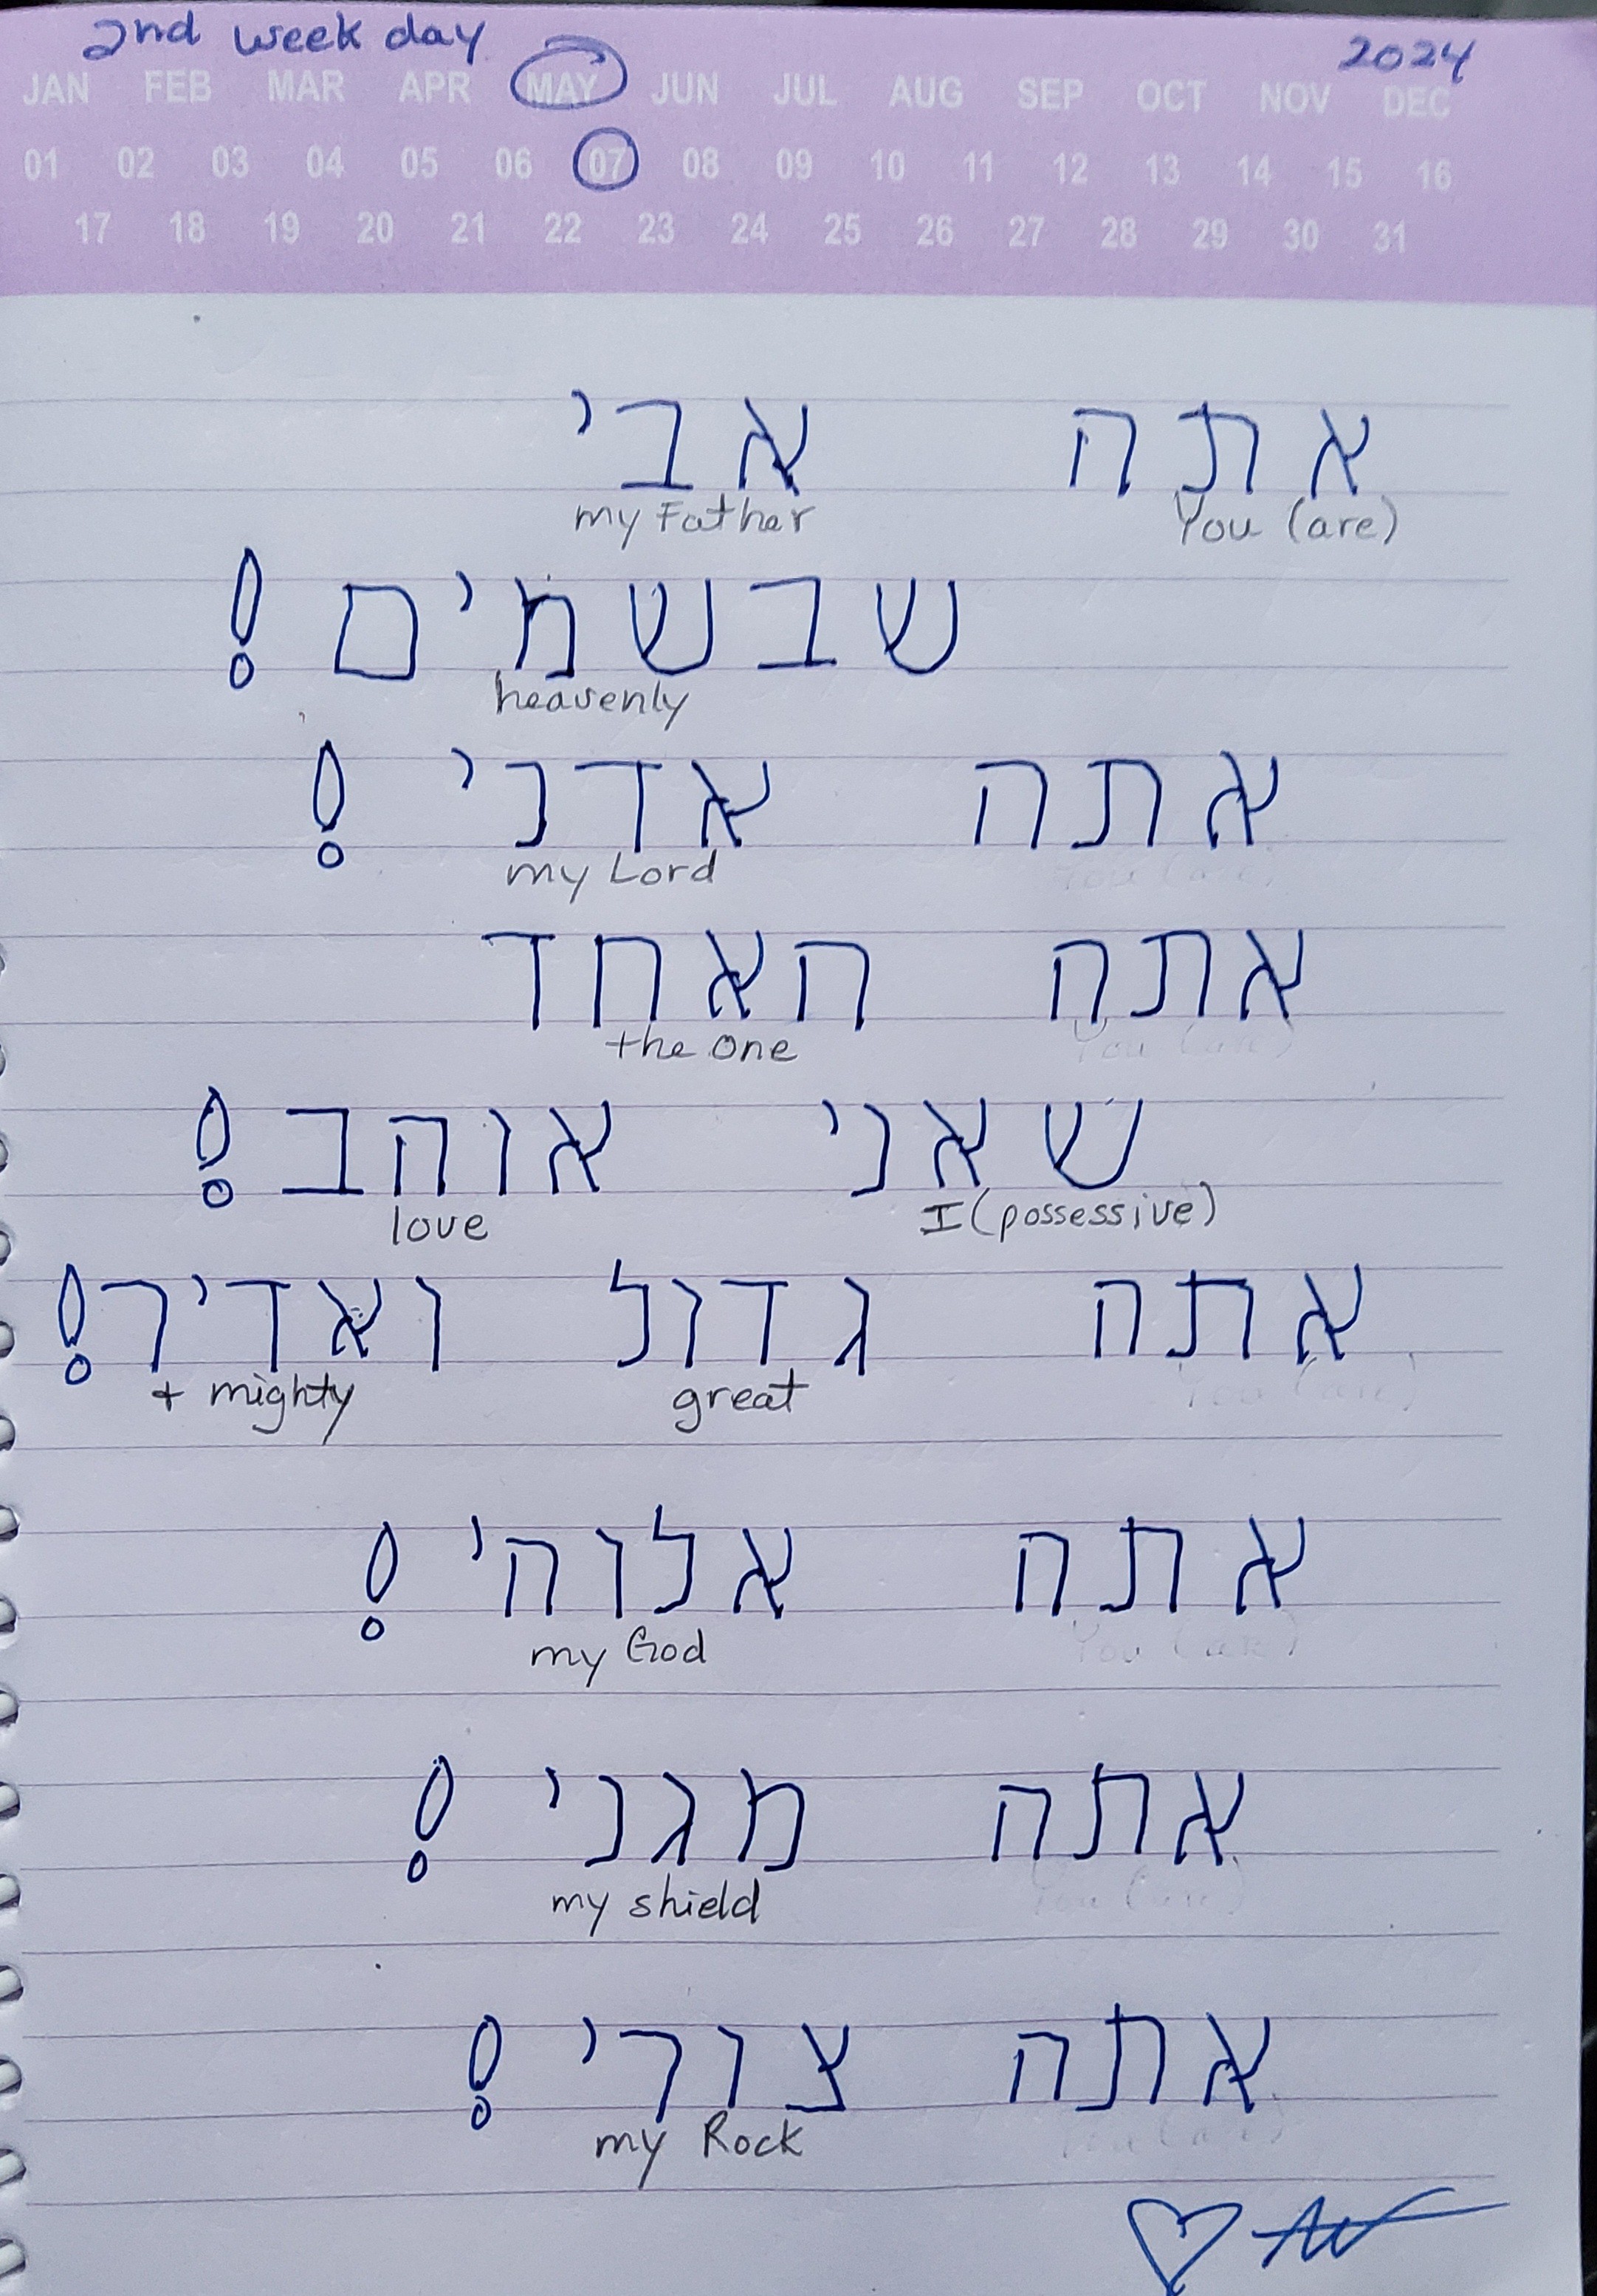 2nd week day 2024
JAN FEB MAR APR MAY JUN JUL AUG SEP OCT NOV DEC
01 02 03 04 05 06 07 08 09 10 11 12 13 14 15 16
17 18 19 20 21 22 23 24 25 26 27 28 29 30 31
אתה אבי
my Father You (are)
שבשמים!
heavenly
אתה אדני!
my Lord You (are)
אתה האחד
the one You (are)
שאני אוהב!
love I (possessive)
אתה גדול ואדיר!
+ mighty great You (are)
אתה אלוהי!
my God You (are)
אתה מגני!
my shield You (are)
אתה צורי!
my Rock You (are)